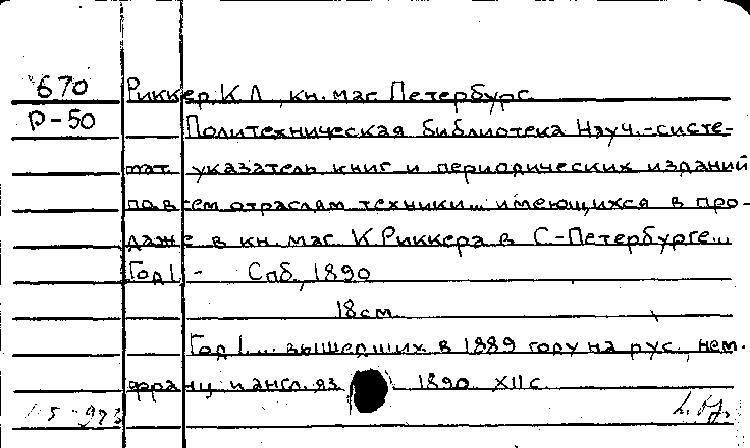 670 Риккер, К Л, кн. маг. Петербург.
Р-50 Политехническая библиотека Науч.-систе-
мат. указатель книг и периодических изданий
по всем отраслям техники... имеющихся в про-
даже в кн. маг. К Риккера в С-Петербурге...
Год 1 - Спб., 1890
18см.
Год 1.... вышедших в 1889 году на рус., нем.
франц и англ. яз. 1890. XII с.